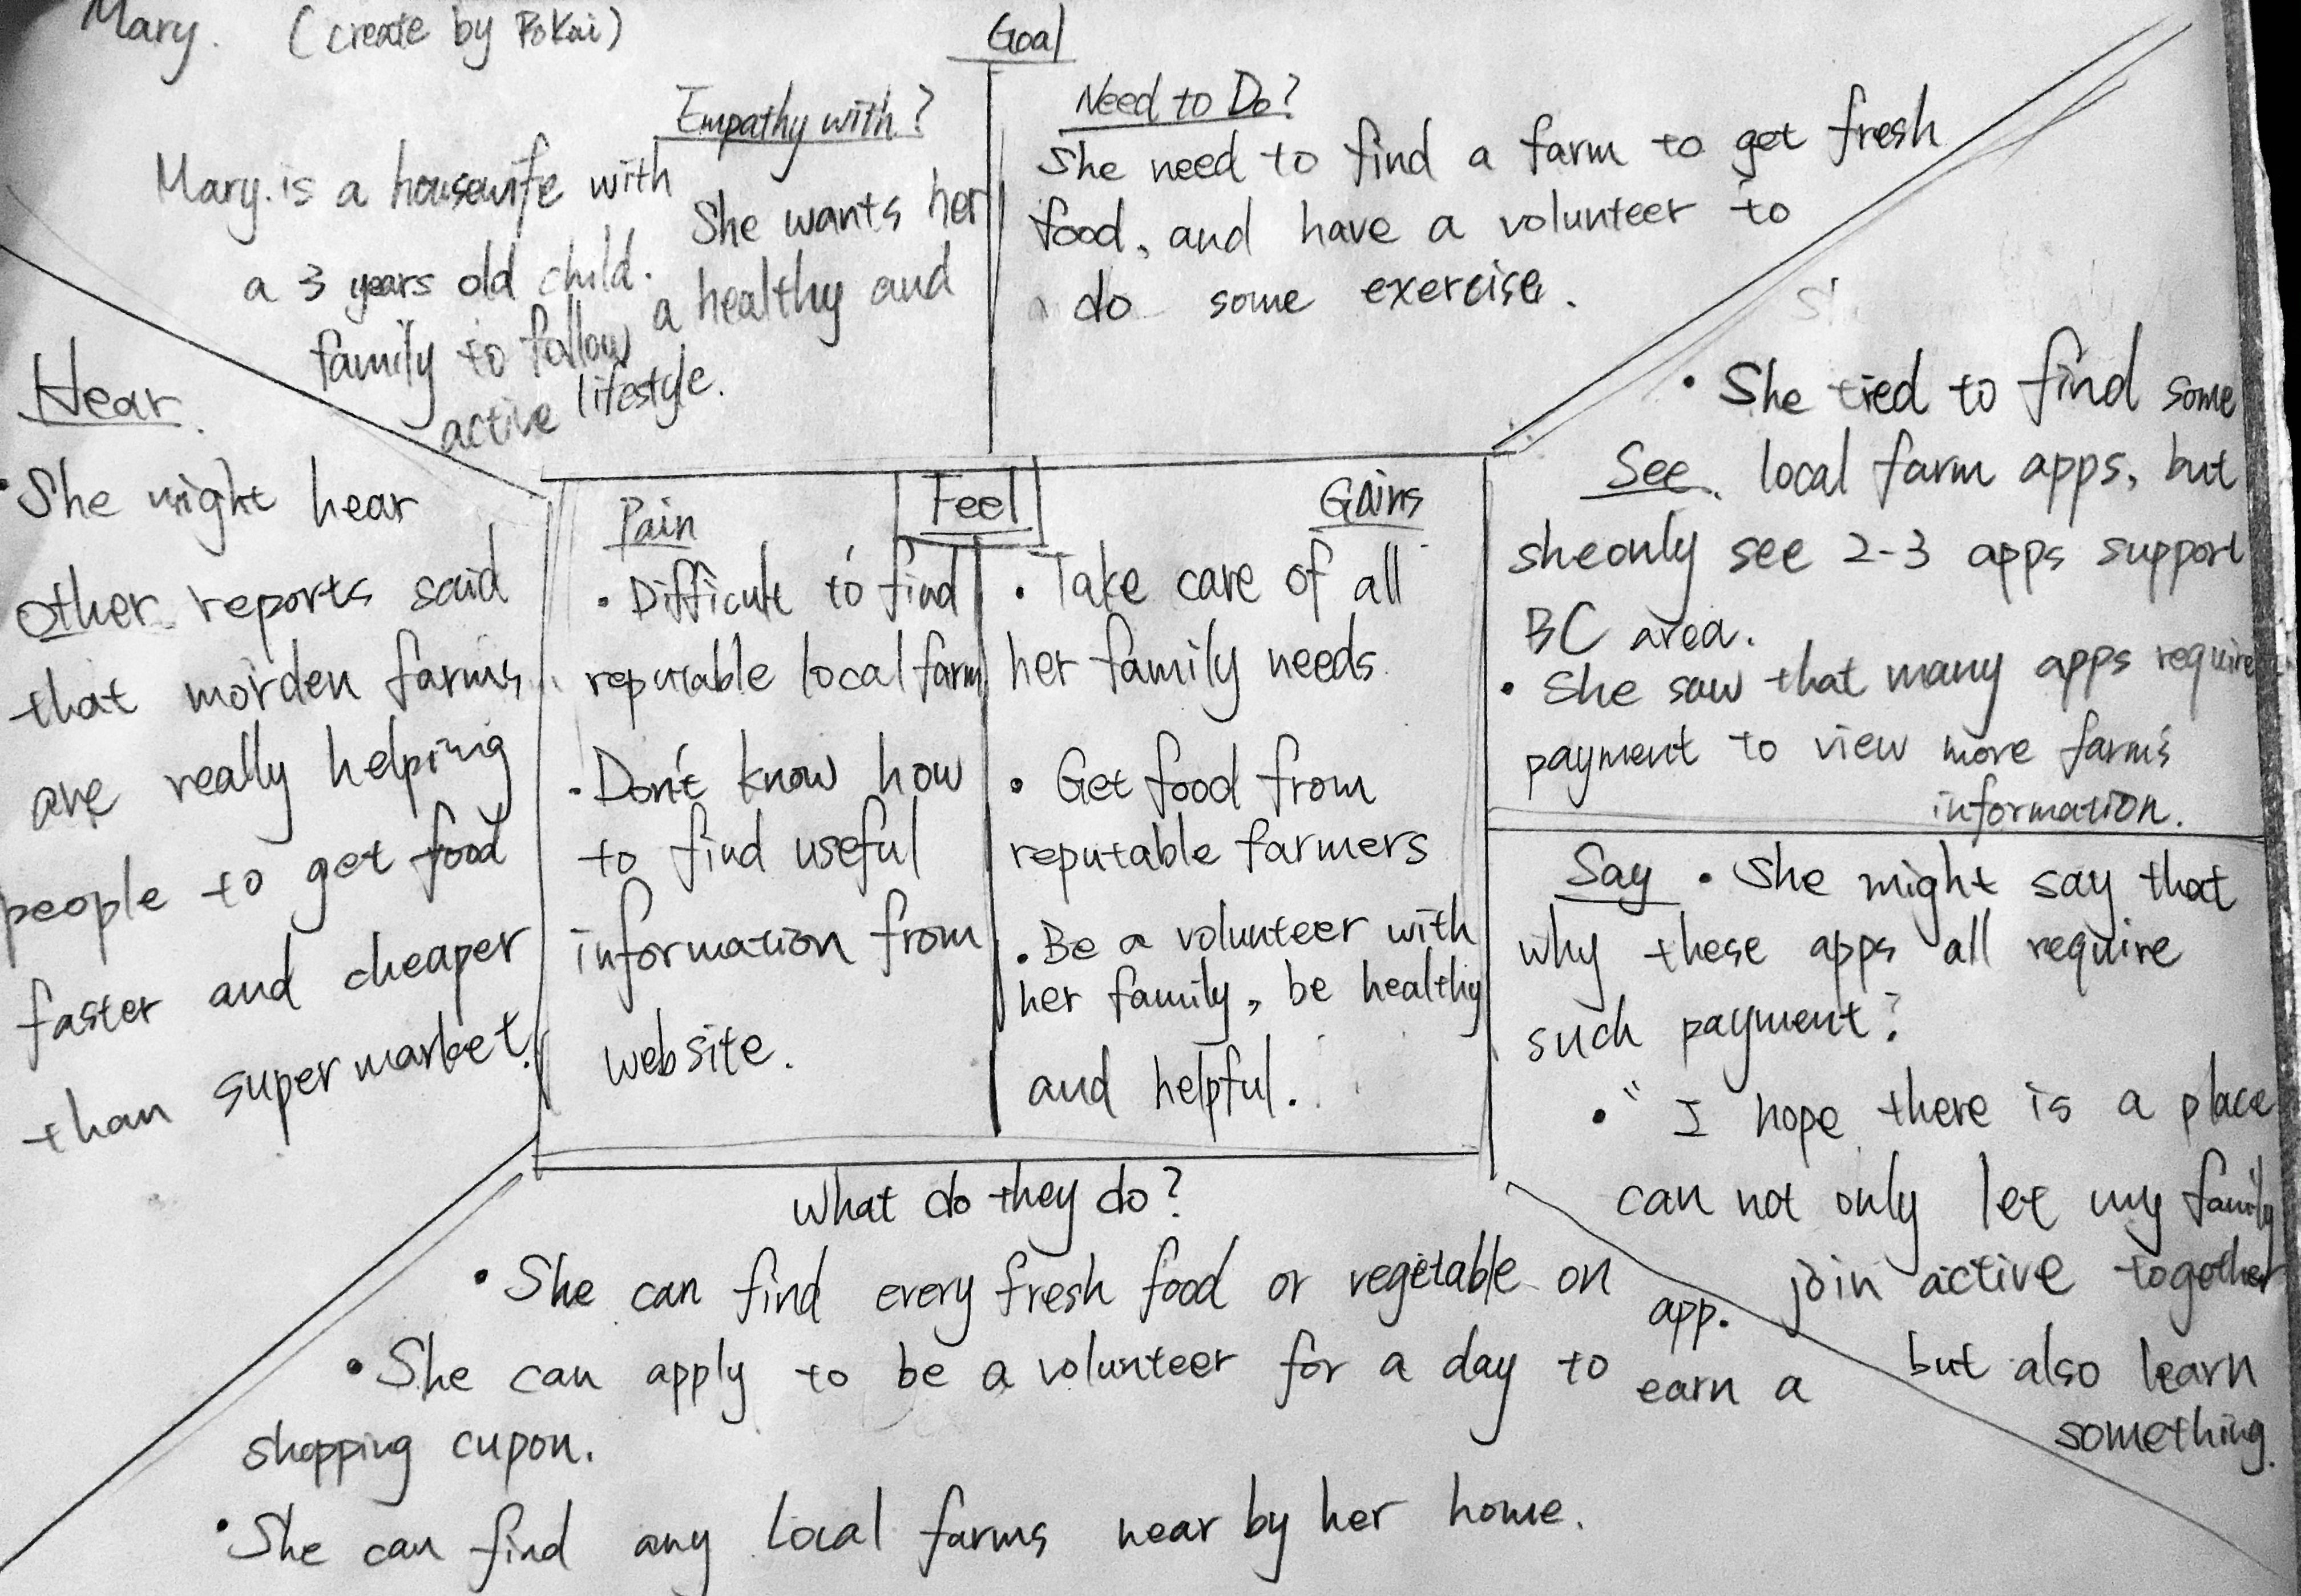 Mary. (create by PoKai)
Goal
Empathy with?
Mary. is a housewife with
a 3 years old child. She wants her
family to follow a healthy and
active lifestyle.
Need to Do?
She need to find a farm to get fresh
food, and have a volunteer to
do some exercise.
Hear
• She might hear
other reports said
that morden farms
are really helping
people to get food
faster and cheaper
than super market.
Feel
Pain
• Difficult to find
reputable local farm
• Don't know how
to find useful
information from
website.
Gains
• Take care of all
her family needs
• Get food from
reputable farmers
• Be a volunteer with
her family, be healthy
and helpful.
See
• She tied to find some
local farm apps, but
she only see 2-3 apps support
BC area.
• She saw that many apps require
payment to view more farm's
information.
Say • She might say that
why these apps all require
such payment?
• " I hope there is a place
can not only let my family
join active together
but also learn
something.
What do they do?
• She can find every fresh food or vegetable on app.
• She can apply to be a volunteer for a day to earn a
shopping cupon.
• She can find any local farms near by her home.